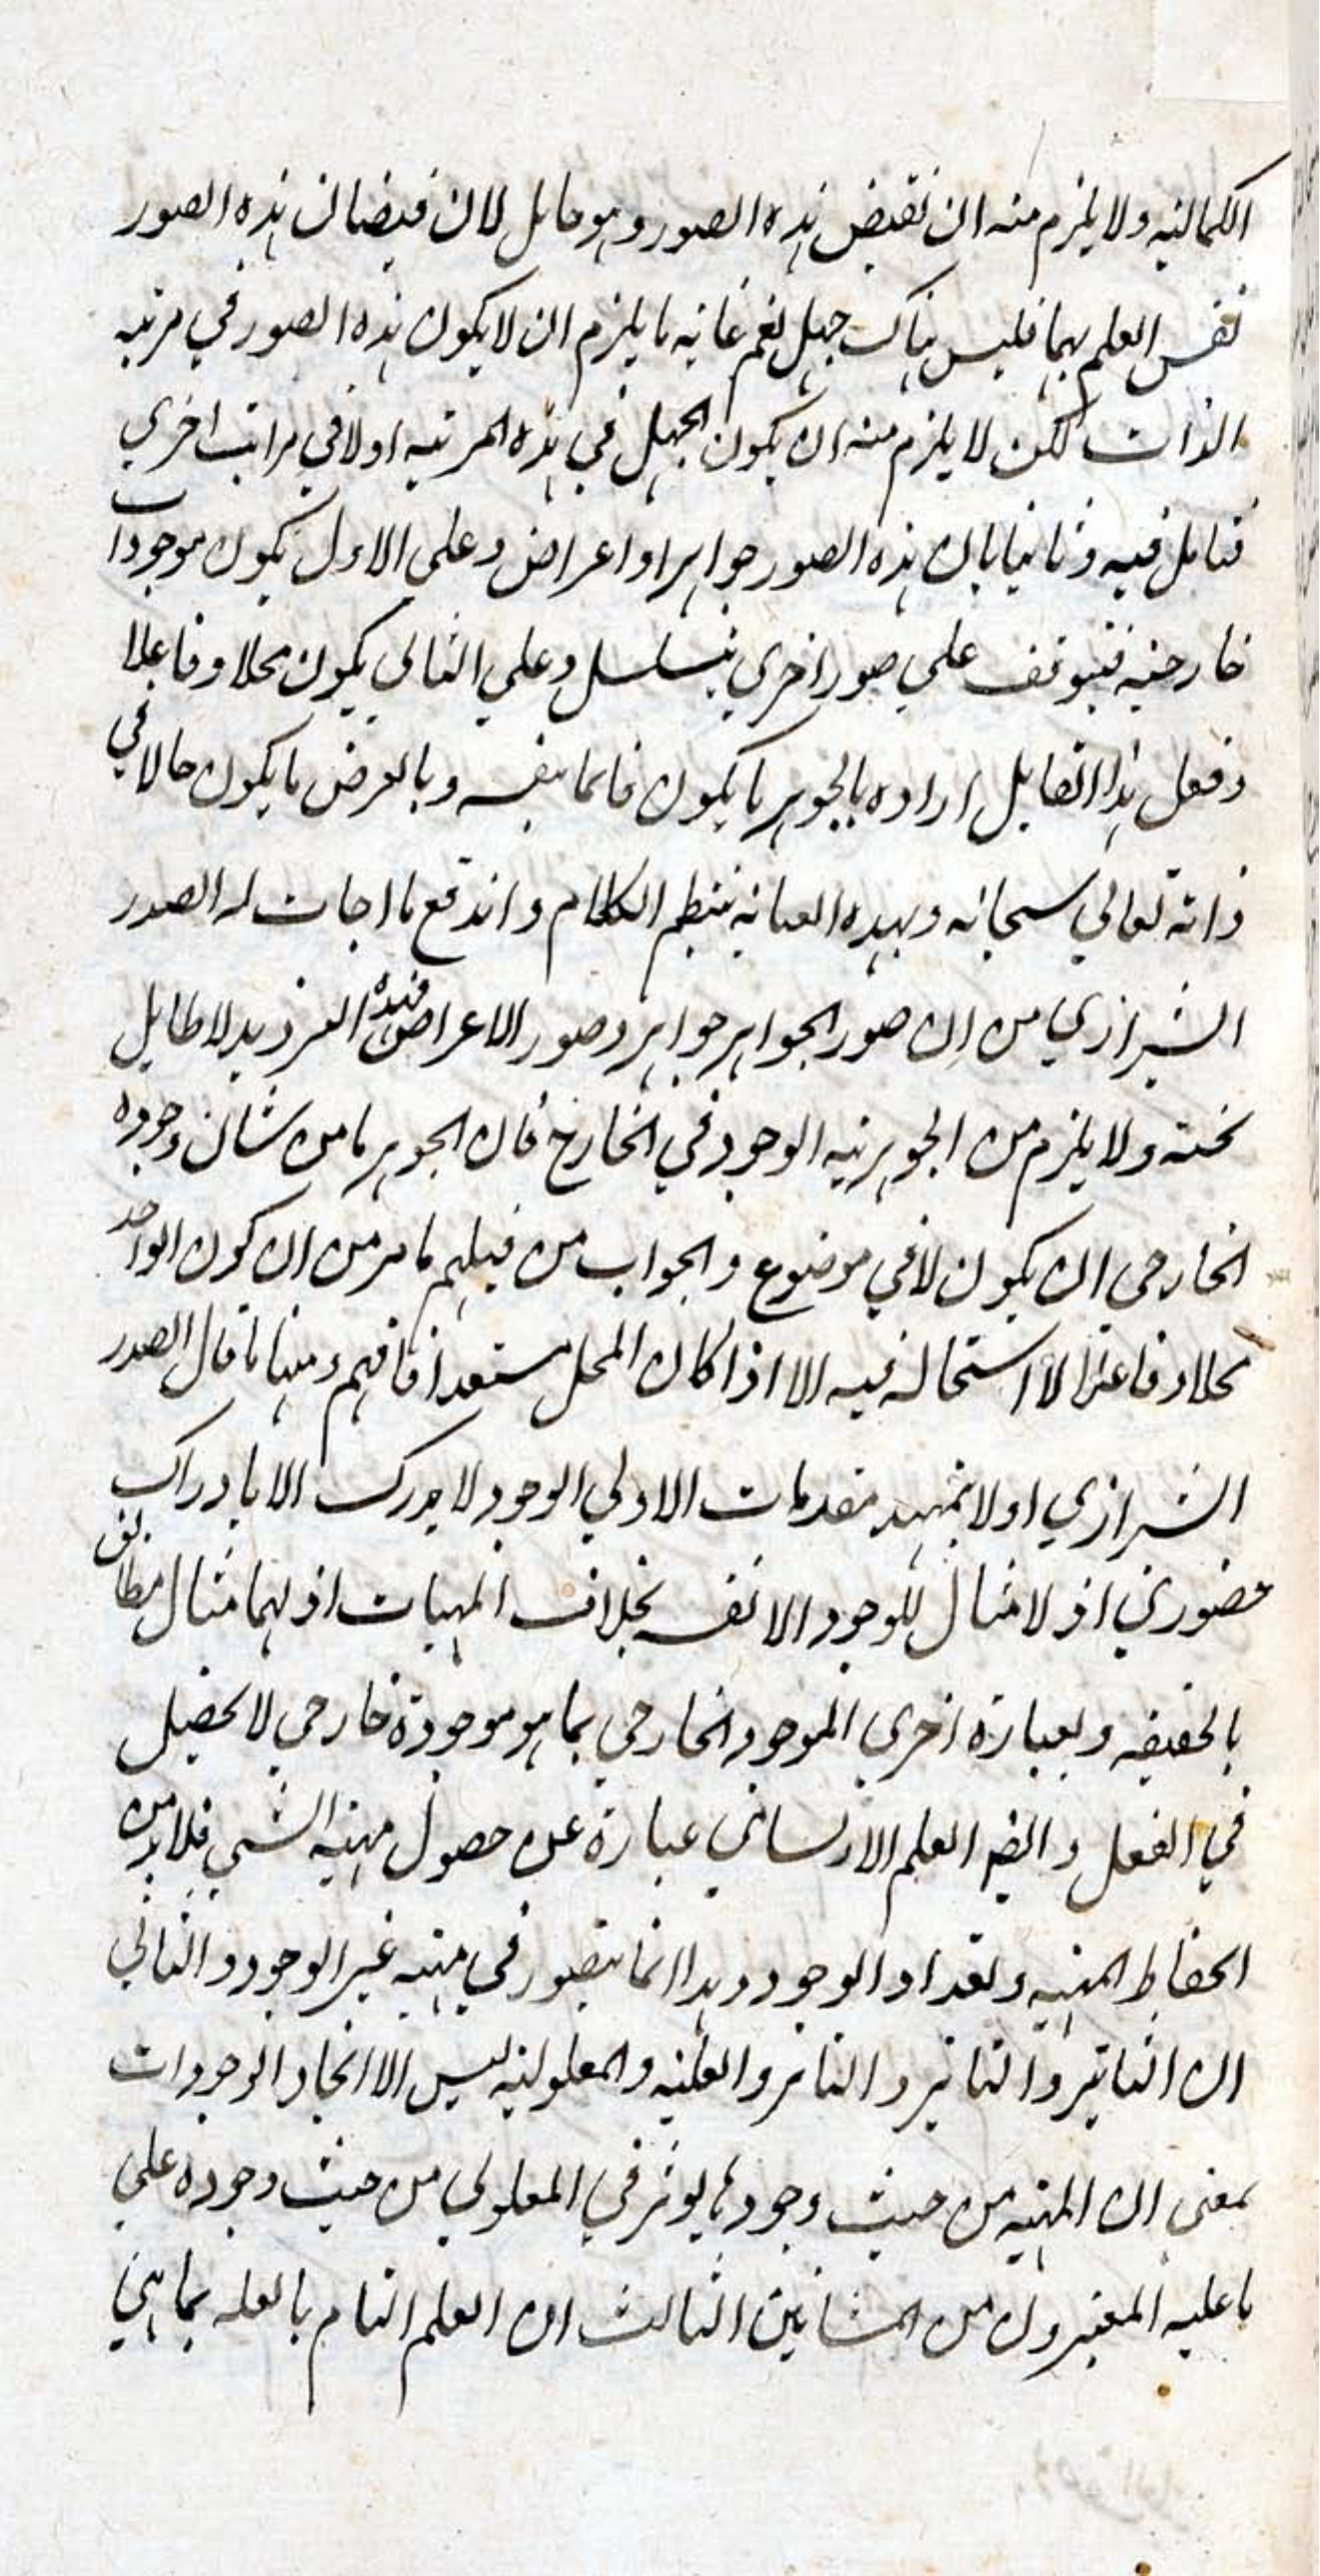 الكمالیه ولا یلزم منه ان تفیض هذه الصور وهو جاهل لان فیضان هذه الصور
نفس العلم بها فلیس هناک جهل نعم غایة ما یلزم ان لا یکون هذه الصور في مرتبه
الذات لکن لا یلزم منه ان یکون الجهل في هذه المرتبه اولا في مراتب اخري
فتامل فیه وثانیا بان هذه الصور جواهر او اعراض وعلي الاول یکون موجودات
خارجیه فیتوقف علي صور اخري یتسلسل وعلي الثاني یکون محلا وفاعلا
ولعل هذا القایل اراده بالجوهر ما یکون قائما بنفسه وبالعرض ما یکون حالا في
ذاته تعالي سبحانه وبهذه العنایه ینتظم الکلام واندفع ما اجاب له الصدر
الشیرازي من ان صور الجواهر جواهر وصور الاعراض فهذه التردید لا طایل
تحته ولا یلزم من الجوهریه الوجود في الخارج فان الجوهر ما من شان وجوده
الخارجي ان یکون لا في موضوع والجواب من قبلهم ما مر من ان کون الواحد
محلا وفاعلا لا استحاله فیه الا اذا کان المحل مستعدا فافهم ومنها ما قال الصدر
الشیرازي اولا بتمهید مقدمات الاولي الوجود لا یدرک الا بادراک
حضوري اذ لا مثال للوجود الا نفسه بخلاف المهیات اذ لها مثال مطابق
بالحقیقه وبعبارة اخري الموجود الخارجي بما هو موجودة خارجي لا یحصل
في العقل وایضا العلم الارتسامي عبارة عن حصول مهیة الشي فلابد من
انحفاظ المهیه وتعداد الوجود وهذا انما یتصور في مهیه غیر الوجود والثاني
ان التاثیر والتاثیر والتاثر والعلیه والمعلولیه لیس الا اتحاد الوجودات
بمعني ان المهیه من حیث وجودها یوثر في المعلولي من حیث وجوده علي
ما علیه المعتبرون من المشائین الثالث ان العلم التام بالعله بما هي